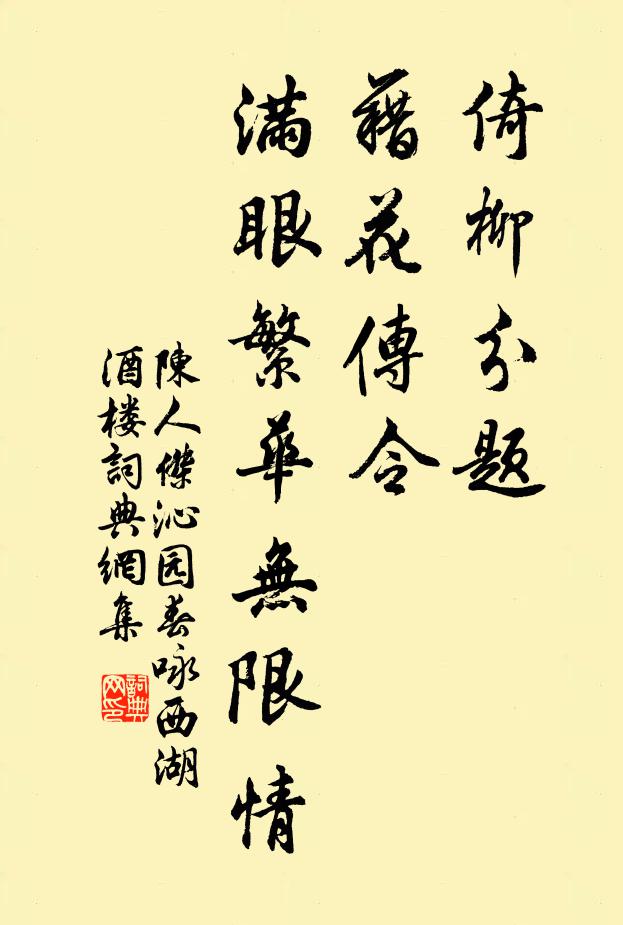 倚柳分题
藉花傳令
滿眼繁華無限情
陳人傑沁园春咏西湖
酒楼詞典網集
詞典
网印